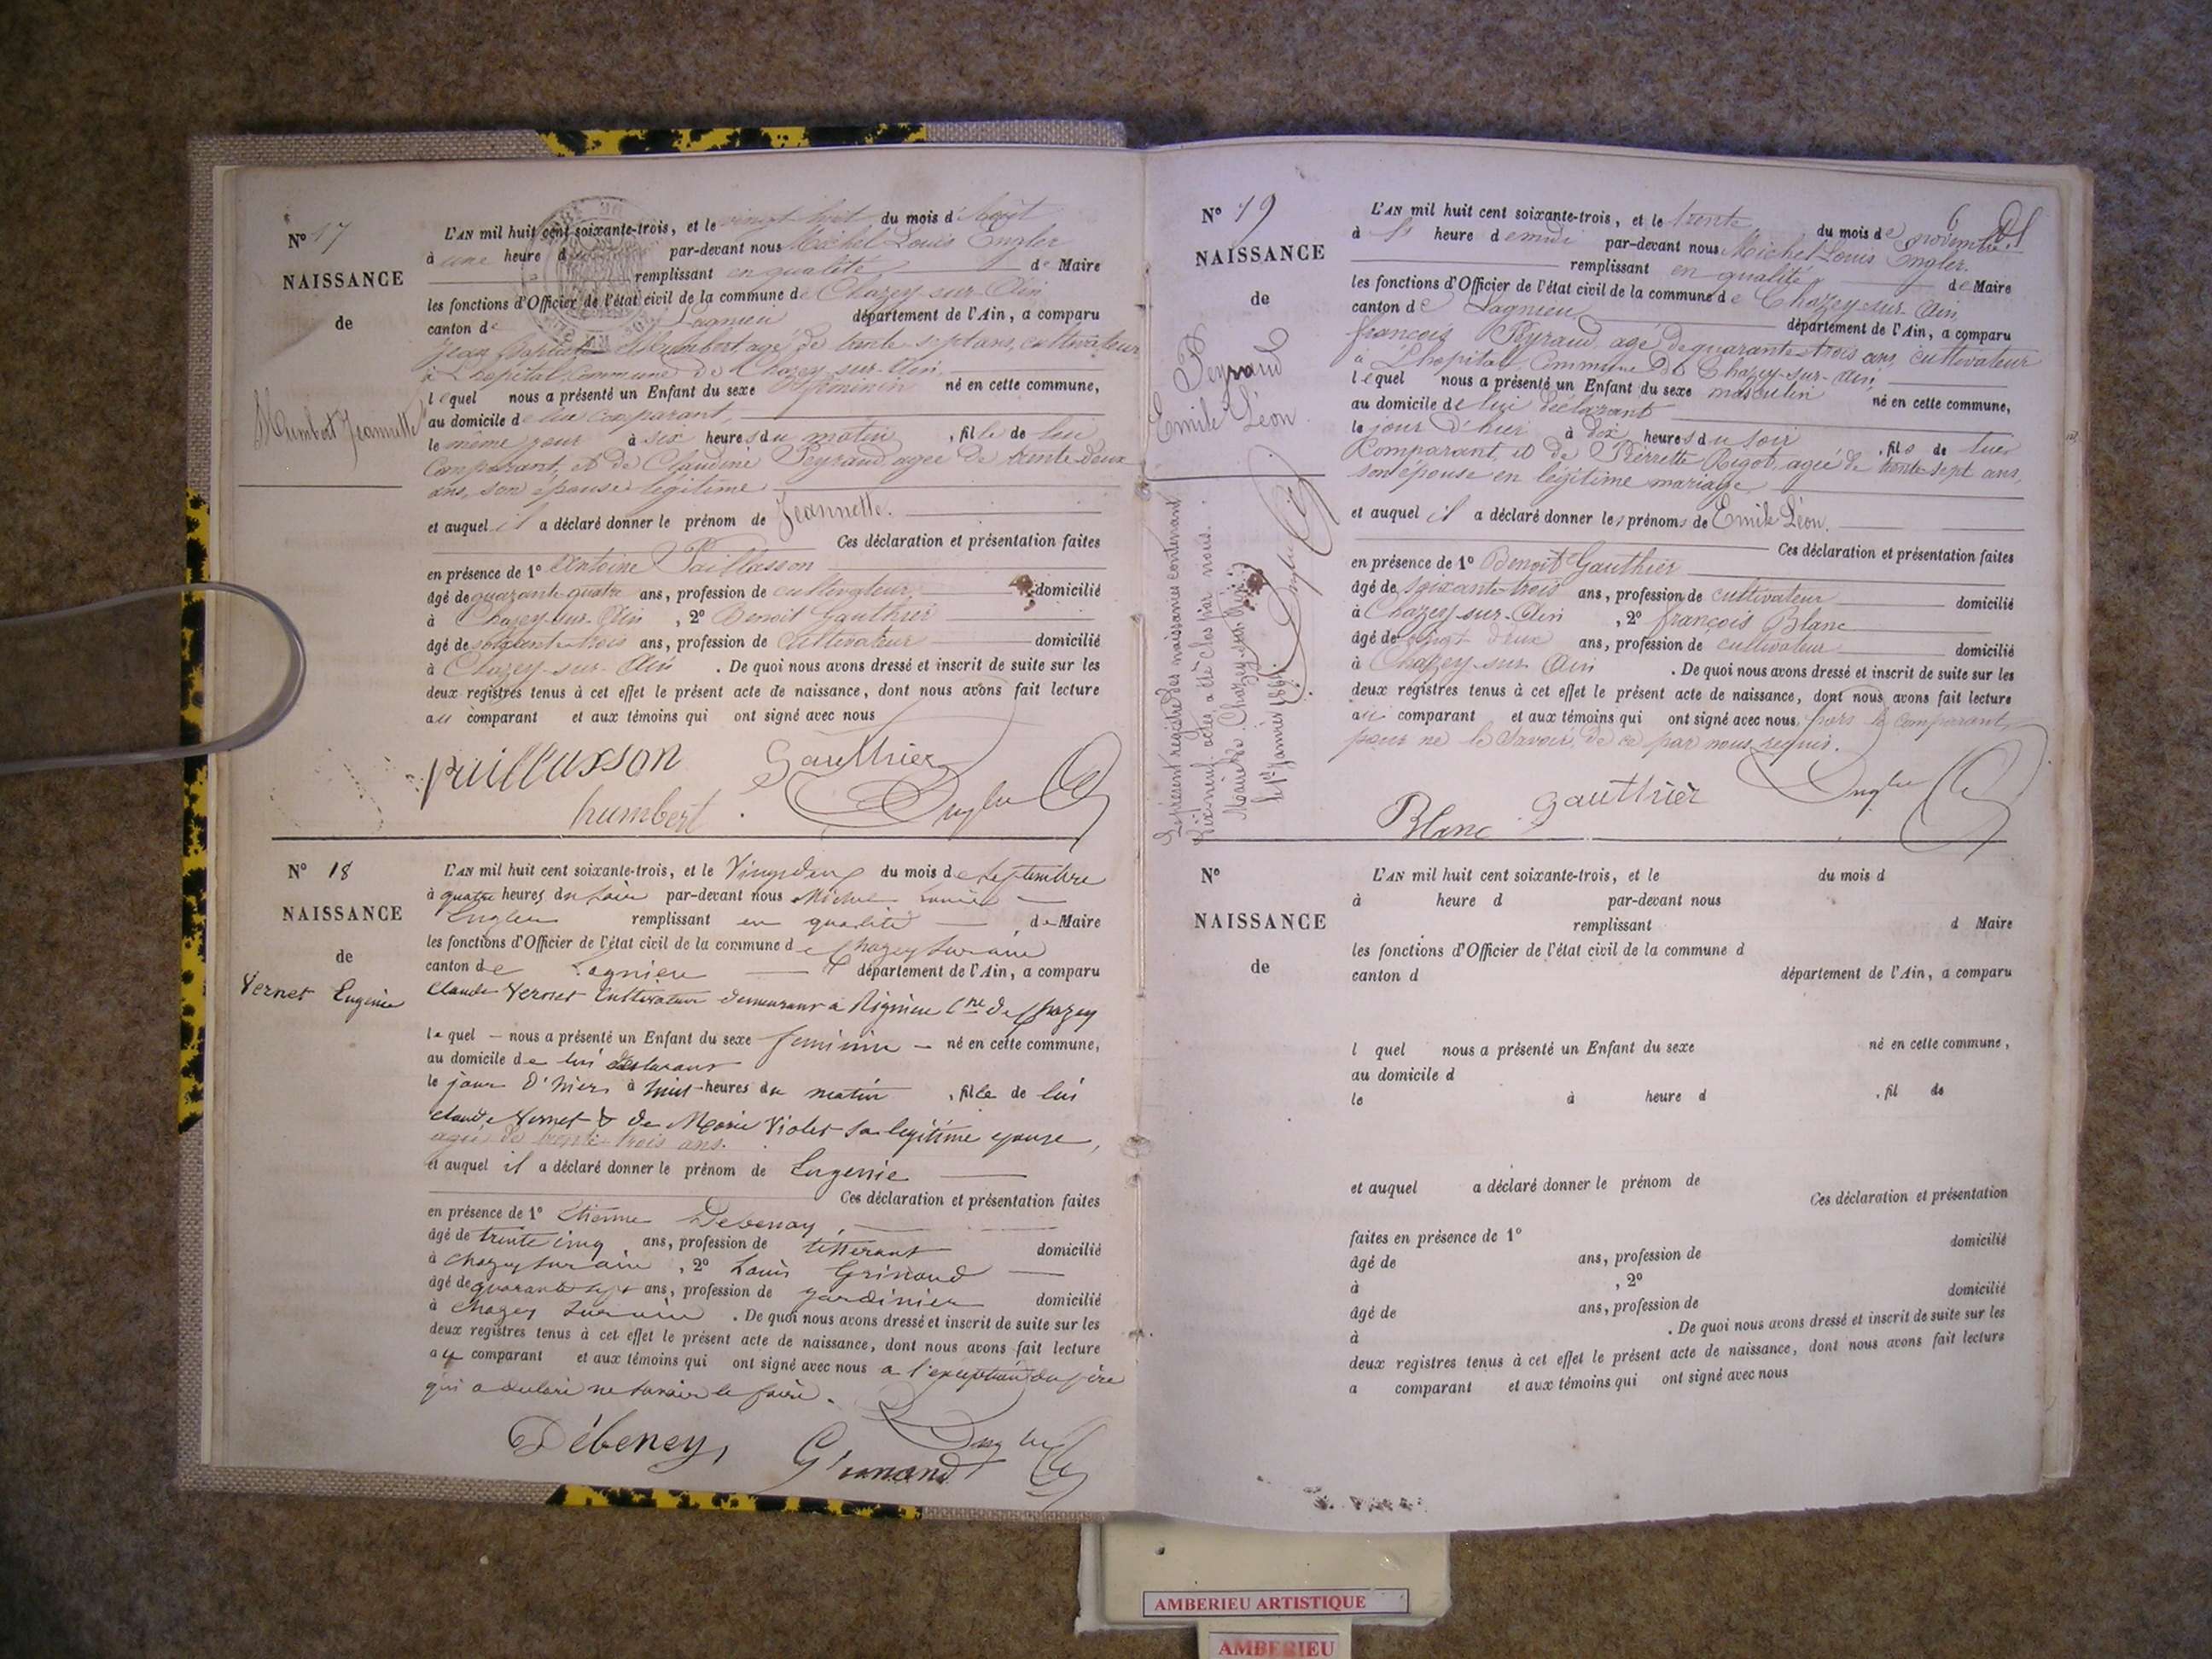 N° 17
NAISSANCE
de
Humbert Jeannette
L'AN mil huit cent soixante-trois, et le vingt huit du mois d'Août
à une heure par-devant nous Michel Louis Engler
remplissant en qualité de Maire
les fonctions d'Officier de l'état civil de la commune de Chazey-sur-Ain
canton de Lagnieu département de l'Ain, a comparu
Jean Baptiste Humbert, agé de trente sept ans, cultivateur
à L'hopital Commune de Chazey-sur-Ain
lequel nous a présenté un Enfant du sexe féminin né en cette commune,
au domicile de lui comparant,
le même jour à six heures du matin, fille de lui
Comparant, et de Claudine Peyraud agée de trente-deux
ans, son épouse légitime
et auquel il a déclaré donner le prénom de Jeannette.
Ces déclaration et présentation faites
en présence de 1° Antoine Paillasson
âgé de quarante quatre ans, profession de cultivateur, domicilié
à Chazey-sur-Ain, 2° Benoit Gauthier
âgé de soixante-trois ans, profession de Cultivateur domicilié
à Chazey-sur-Ain. De quoi nous avons dressé et inscrit de suite sur les
deux registres tenus à cet effet le présent acte de naissance, dont nous avons fait lecture
au comparant et aux témoins qui ont signé avec nous
Paillasson Gauthier
humbert Engler
N° 18
NAISSANCE
de
Vernet Eugenie
L'AN mil huit cent soixante-trois, et le Vingt deux du mois de septembre
à quatre heures du soir par-devant nous Michel Louis
Engler remplissant en qualité de Maire
les fonctions d'Officier de l'état civil de la commune de Chazey sur ain
canton de Lagnieu département de l'Ain, a comparu
Claude Vernet Cultivateur demeurant à Rignieu Cne de Chazey
lequel nous a présenté un Enfant du sexe feminin né en cette commune,
au domicile de lui déclarant
le jour d'hier à huit heures du matin, fille de lui
Claude Vernet & de Marie Violet sa legitime epouse,
agée de trente trois ans.
et auquel il a déclaré donner le prénom de Eugenie
Ces déclaration et présentation faites
en présence de 1° Etienne Debeney,
âgé de trente cinq ans, profession de tisserant domicilié
à chazey sur ain, 2° Louis Grinand
âgé de quarante sept ans, profession de jardinier domicilié
à Chazey sur ain. De quoi nous avons dressé et inscrit de suite sur les
deux registres tenus à cet effet le présent acte de naissance, dont nous avons fait lecture
au comparant et aux témoins qui ont signé avec nous a l'exception du père
qui a declaré ne savoir le faire.
Débeney, Grinand Engler
6
N° 19
NAISSANCE
de
Peyraud
Emile Léon
L'AN mil huit cent soixante-trois, et le trente du mois de novembre
à heure de midi par-devant nous Michel Louis Engler
remplissant en qualité de Maire
les fonctions d'Officier de l'état civil de la commune de Chazey-sur-Ain
canton de Lagnieu département de l'Ain, a comparu
françois Peyraud, agé de quarante-trois ans, cultivateur
à L'hopital Commune de Chazey-sur-Ain,
lequel nous a présenté un Enfant du sexe masculin né en cette commune,
au domicile de lui déclarant
le jour d'hier à dix heures du soir, fils de lui
Comparant, et de Pierrette Rigot, agée de trente-sept ans,
son épouse en légitime mariage
et auquel il a déclaré donner les prénoms de Emile Léon.
Ces déclaration et présentation faites
en présence de 1° Benoit Gauthier
âgé de soixante-trois ans, profession de cultivateur domicilié
à Chazey-sur-Ain, 2° françois Blanc
âgé de vingt deux ans, profession de cultivateur domicilié
à Chazey-sur Ain. De quoi nous avons dressé et inscrit de suite sur les
deux registres tenus à cet effet le présent acte de naissance, dont nous avons fait lecture
au comparant et aux témoins qui ont signé avec nous, hors le comparant,
pour ne le savoir de ce par nous requis.
Blanc Gauthier Engler
Le présent registre des naissances contenant
Dix-neuf actes a été clos par nous.
Maire de Chazey-sur-Ain
le 1er Janvier 1864.
Engler
N°
NAISSANCE
de
L'AN mil huit cent soixante-trois, et le du mois d
à heure d par-devant nous
remplissant d Maire
les fonctions d'Officier de l'état civil de la commune d
canton d département de l'Ain, a comparu
l quel nous a présenté un Enfant du sexe né en cette commune,
au domicile d
le à heure d , fil de
et auquel a déclaré donner le prénom de
Ces déclaration et présentation
faites en présence de 1° domicilié
âgé de ans, profession de
à , 2° domicilié
âgé de ans, profession de
à . De quoi nous avons dressé et inscrit de suite sur les
deux registres tenus à cet effet le présent acte de naissance, dont nous avons fait lecture
a comparant et aux témoins qui ont signé avec nous
AMBERIEU ARTISTIQUE
AMBERIEU